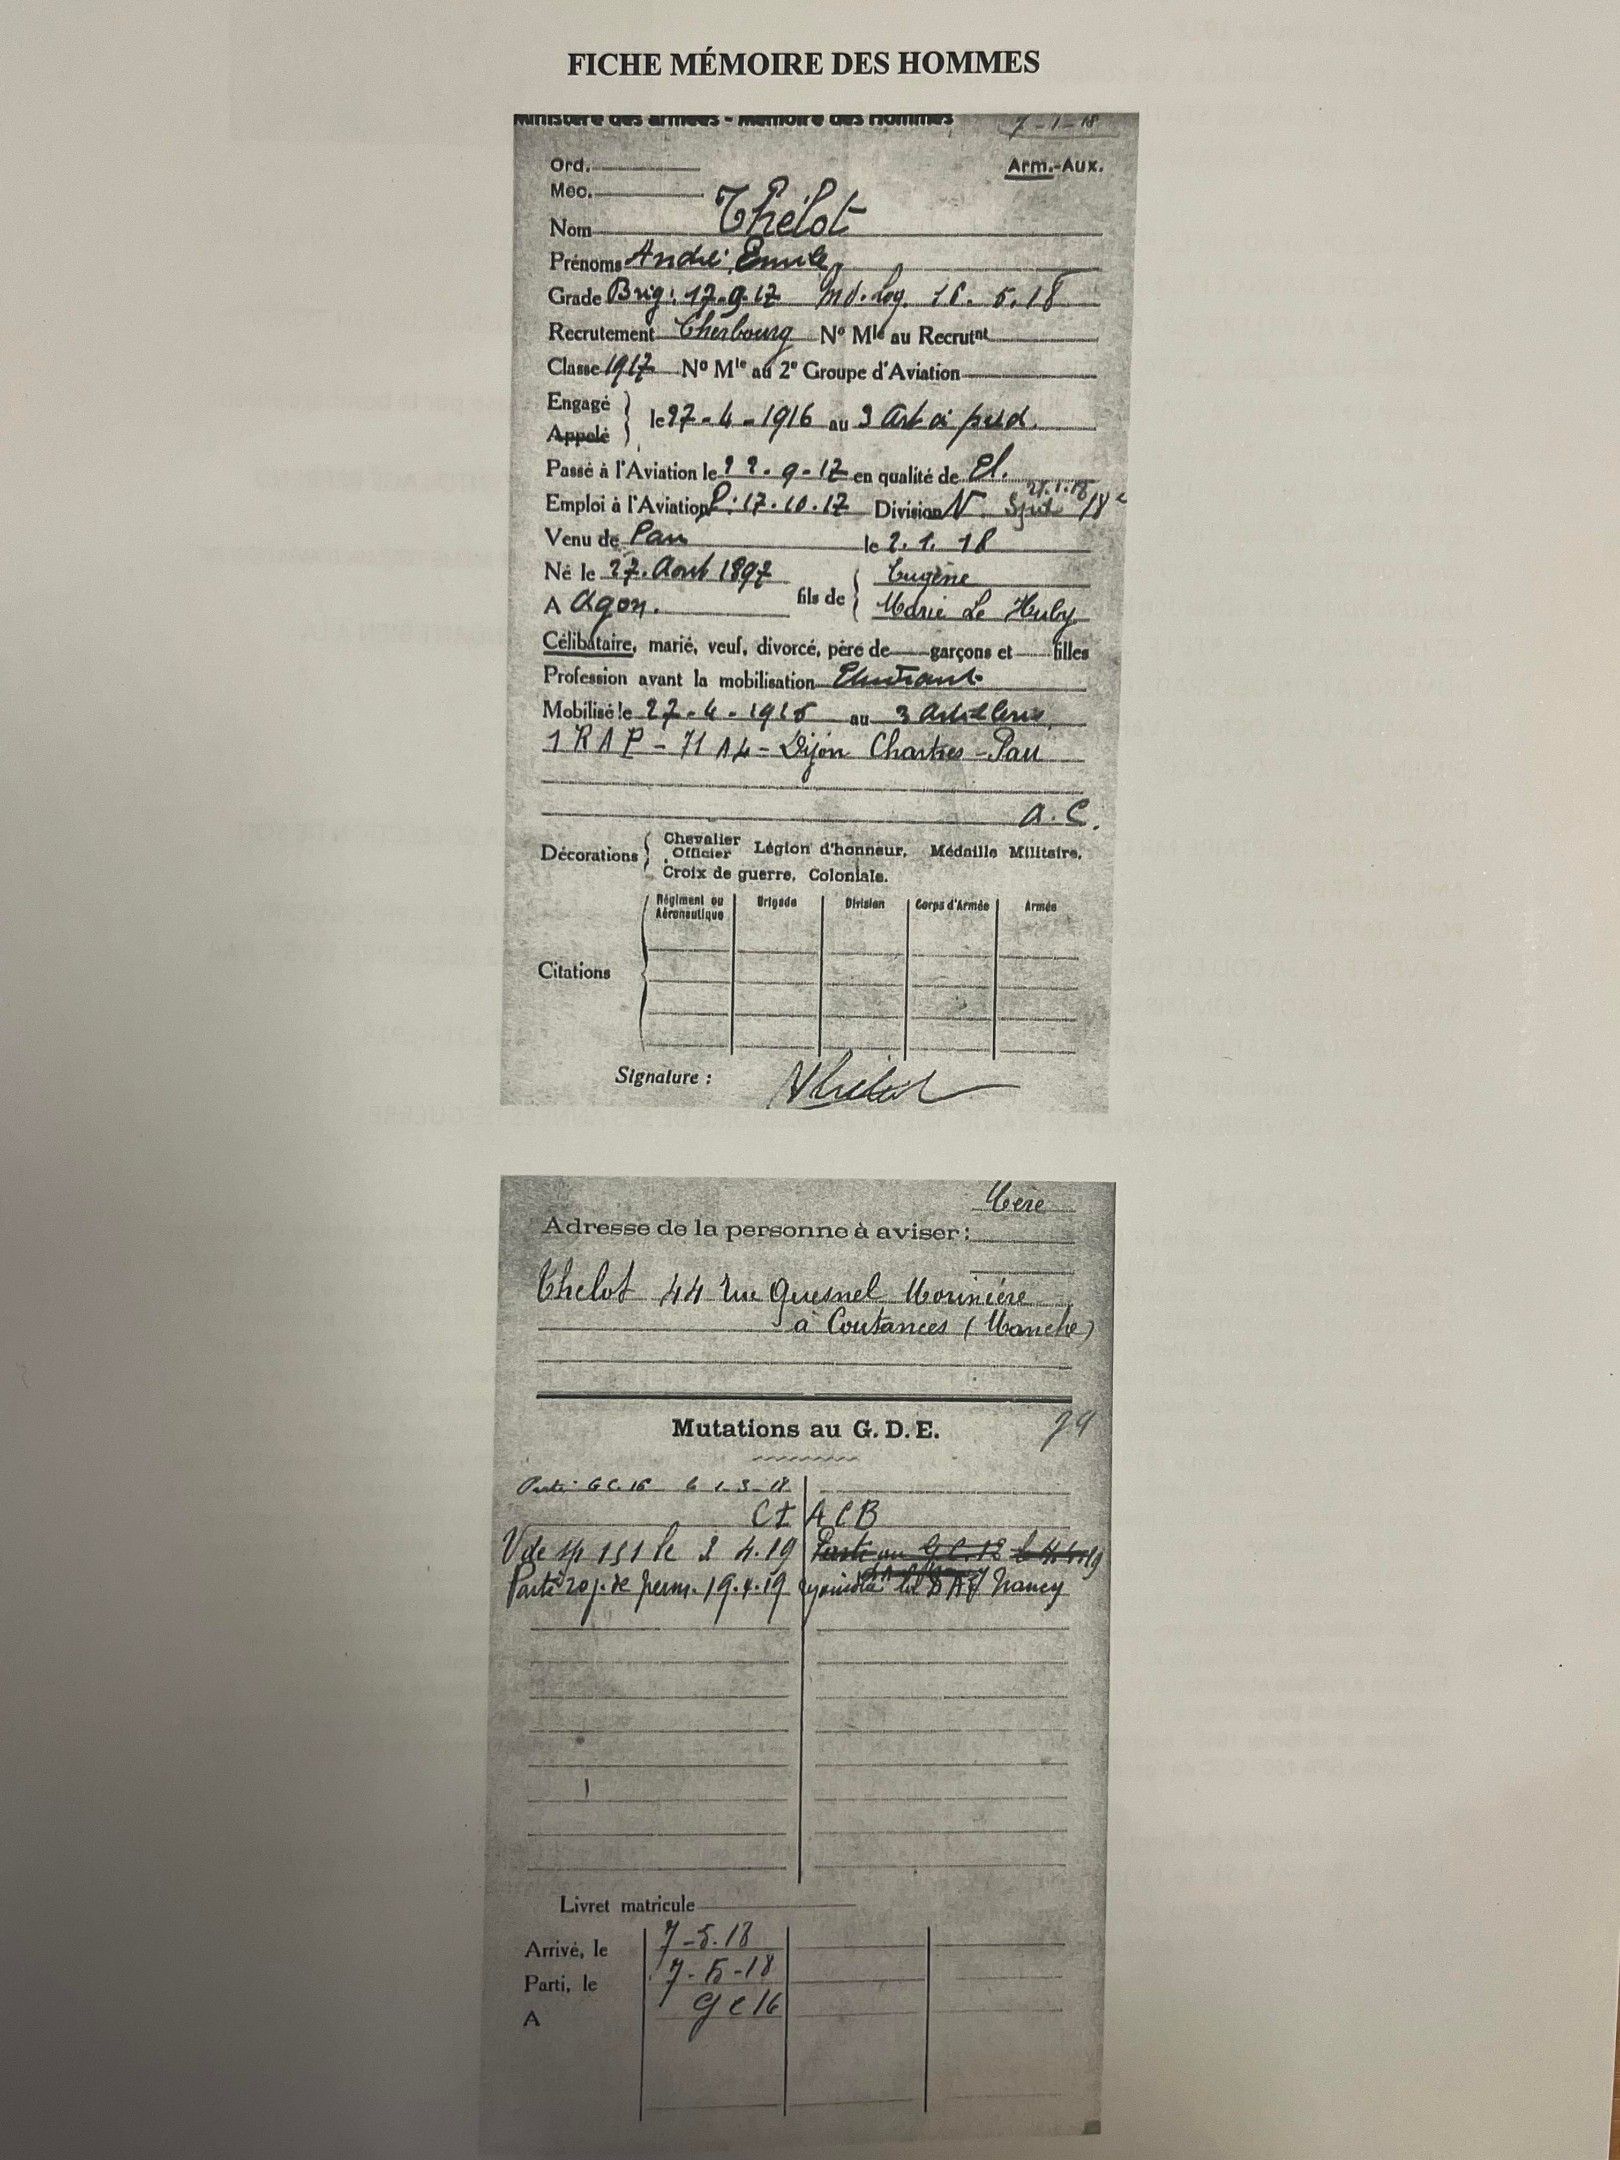 FICHE MÉMOIRE DES HOMMES
Ministère des armées - Mémoire des Hommes
7-1-18
Ord.
Arm.-Aux.
Mec.
Nom Thélot
Prénoms André, Emile
Grade Brig: 17.9.17 Md. Log. 18.5.18
Recrutement Cherbourg No Mle au Recrutnt
Classe 1917 No Mle au 2e Groupe d'Aviation
Engagé
Appelé
le 27-4-1916 au 3 Art à pied.
Passé à l'Aviation le 22.9-17 en qualité de El.
21.1.18
Emploi à l'Aviation P. 17.10.17 Division N. Spad
Venu de Pau le 2.1.18
Né le 27. Aout 1897
A Agon.
fils de
Eugène
Marie Le Huby
Célibataire, marié, veuf, divorcé, père de garçons et filles
Profession avant la mobilisation Etudiant.
Mobilisé le 27-4-1916 au 3 Artillerie,
1 RAP - 71 A L - Dijon Chartres - Pau
A.C.
Décorations
Chevalier
Officier
Légion d'honneur, Médaille Militaire,
Croix de guerre, Coloniale.
Régiment ou Aéronautique Brigade Division Corps d'Armée Armée
Citations
Signature : Thélot
Mère
Adresse de la personne à aviser :
Thelot 44 rue Quesnel Morinière
à Coutances (Manche)
Mutations au G. D. E.
Parti G C. 16 le 1-3-18
Ct ACB
V de sp 151 le 2 4.19 Parti au G.C. 12
Parti 20 j. de perm. 19.4.19 rejoindra Nancy
Livret matricule
Arrivé, le 7-5.18
Parti, le 7-5-18
A G C 16